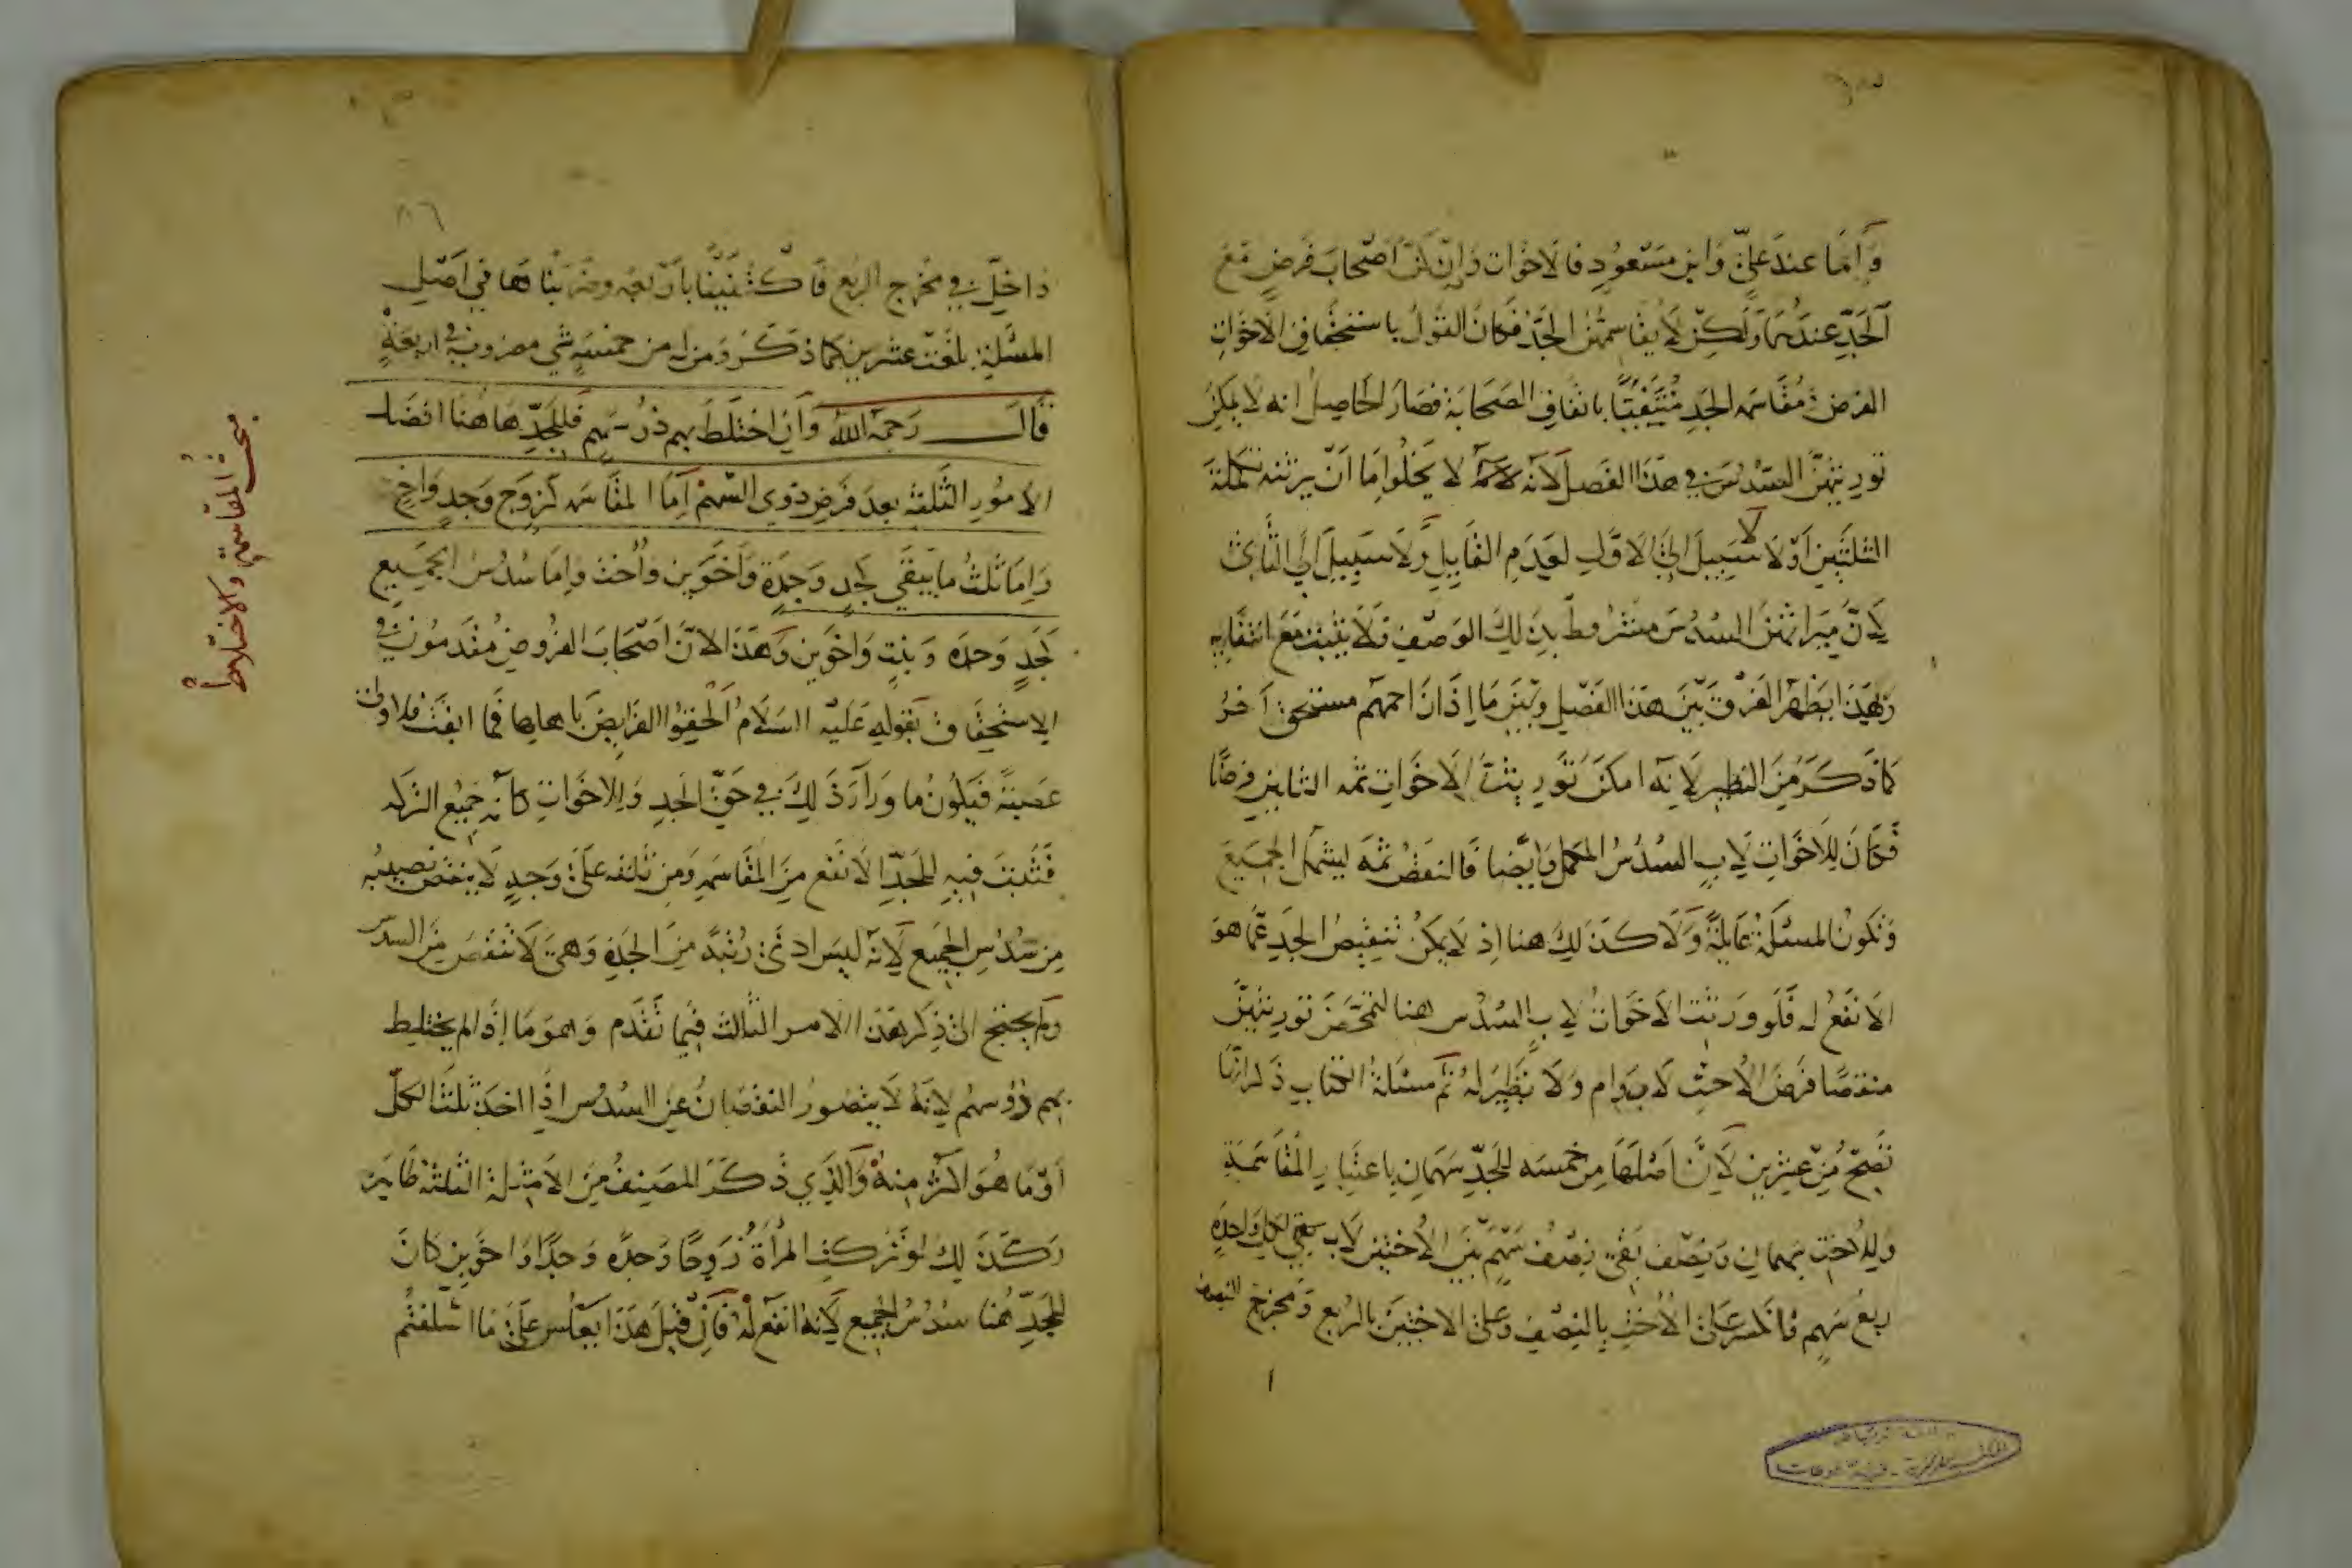 وأما عند علي وابن مسعود فالاخوات وان كن أصحاب فرض مع
الجد عندهما ولكن لا يقاسمهن الجد فكان القول باستحقاق الاخوات
الفرض ثم مقاسمه الجد منتفيا باتفاق الصحابة فصار الحاصل انه لا يمكن
توريثهن السدس في هذا الفصل لانه لا يخلوا اما أن يرثنه تكملة
الثلثين أو لا لا سبيل الى الاول لعدم القايل ولا سبيل الى الثاني
لان ميراثهن السدس مشروط بذلك الوصف فلا يثبت مع انتفايه
وبهذا يظهر الفرق بين هذا الفصل وبين ما اذا زاحمهم مستحق آخر
كما ذكر من النظير لانه امكن توريث الاخوات ثمه الثلثين فرضا
فكان للاخوات لاب السدس المكمل وايضا فالنقص ثمه يشمل الجميع
وتكون المسئلة عايلة ولا كذلك هنا اذ لا يمكن تنقيص الجد عما هو
الانفع له فلو ورثت الاخوات لاب السدس هنا لتمحض توريثهن
منقصا فرض الاخت لاب وام ولا نظير له ثم مسئلة الكتاب ذكر انها
تصح من عشرين لان اصلها من خمسه للجد سهمان باعتبار المقاسمة
وللاخت سهمان ونصف بقى نصف سهم بين الاختين لاب يبقى لكل واحدة
ربع سهم فانكسر على الاخت بالنصف وعلى الاختين بالربع ومخرج النصف
٨٦
داخل في مخرج الربع فاكتفينا باربعه وضربناها في اصل
المسئلة بلغت عشرين كما ذكر ومن له من خمسة شي مضروب في اربعة
قال رحمه الله وان اختلط بهم ذو سهم فللجد هاهنا افضل
الامور الثلثة بعد فرض ذوي السهم اما المقاسمه كزوج وجد واخ
واما ثلث ما يبقى كجد وجدة واخوين واخت واما سدس الجميع
كجد وجده وبنت واخوين وهذا لان اصحاب الفروض مقدمون في
الاستحقاق بقوله عليه السلام الحقوا الفرايض باهلها فما ابقت فلاولى
عصبة فيكون ما وراء ذلك في حق الجد والاخوات كانه جميع التركه
فتثبت فيه للجد الانفع من المقاسمه ومن ثلثه على وجه لا ينقص نصيبه
من سدس الجميع لانه ليس ادنى رتبة من الجدة وهي لا تنقص من السدس
ولم يحتج الى ذكر هذا الامر الثالث فيما تقدم وهو ما اذا لم يختلط
بهم ذو سهم لانه لا يتصور النقصان عن السدس اذا اخذ ثلث الكل
او ما هو اكثر منه والذي ذكر المصنف من الامثلة الثلثة ظاهر
وكذلك لو تركت المرأة زوجا وجده وجدا واخوين كان
للجد هنا سدس الجميع لانه انفع له فان قيل هذا يعكس على ما اسلفتم
مبحث المقاسمة والاختلاط